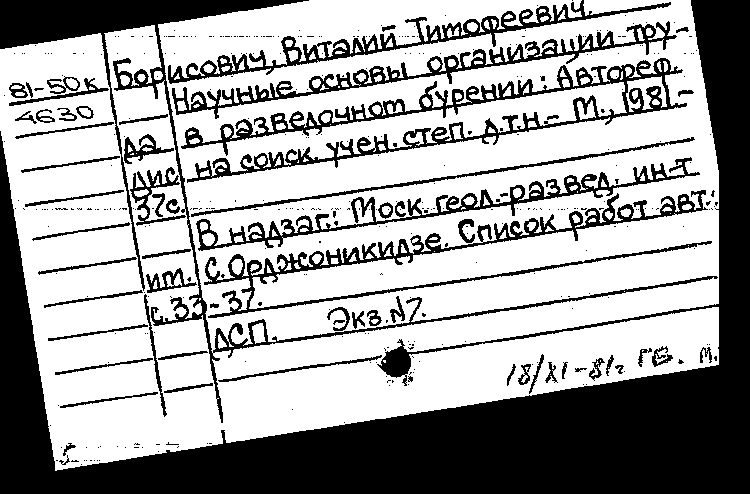 81-50к
4630
Борисович, Виталий Тимофеевич.
Научные основы организации тру-
да в разведочном бурении: Автореф.
дис. на соиск. учен. степ. д.т.н.- М., 1981.-
37с.
В надзаг.: Моск. геол.-развед. ин-т
им. С. Орджоникидзе. Список работ авт.:
с. 33-37.
ДСП. Экз. N7.
18/XI-81г ГБ. М.